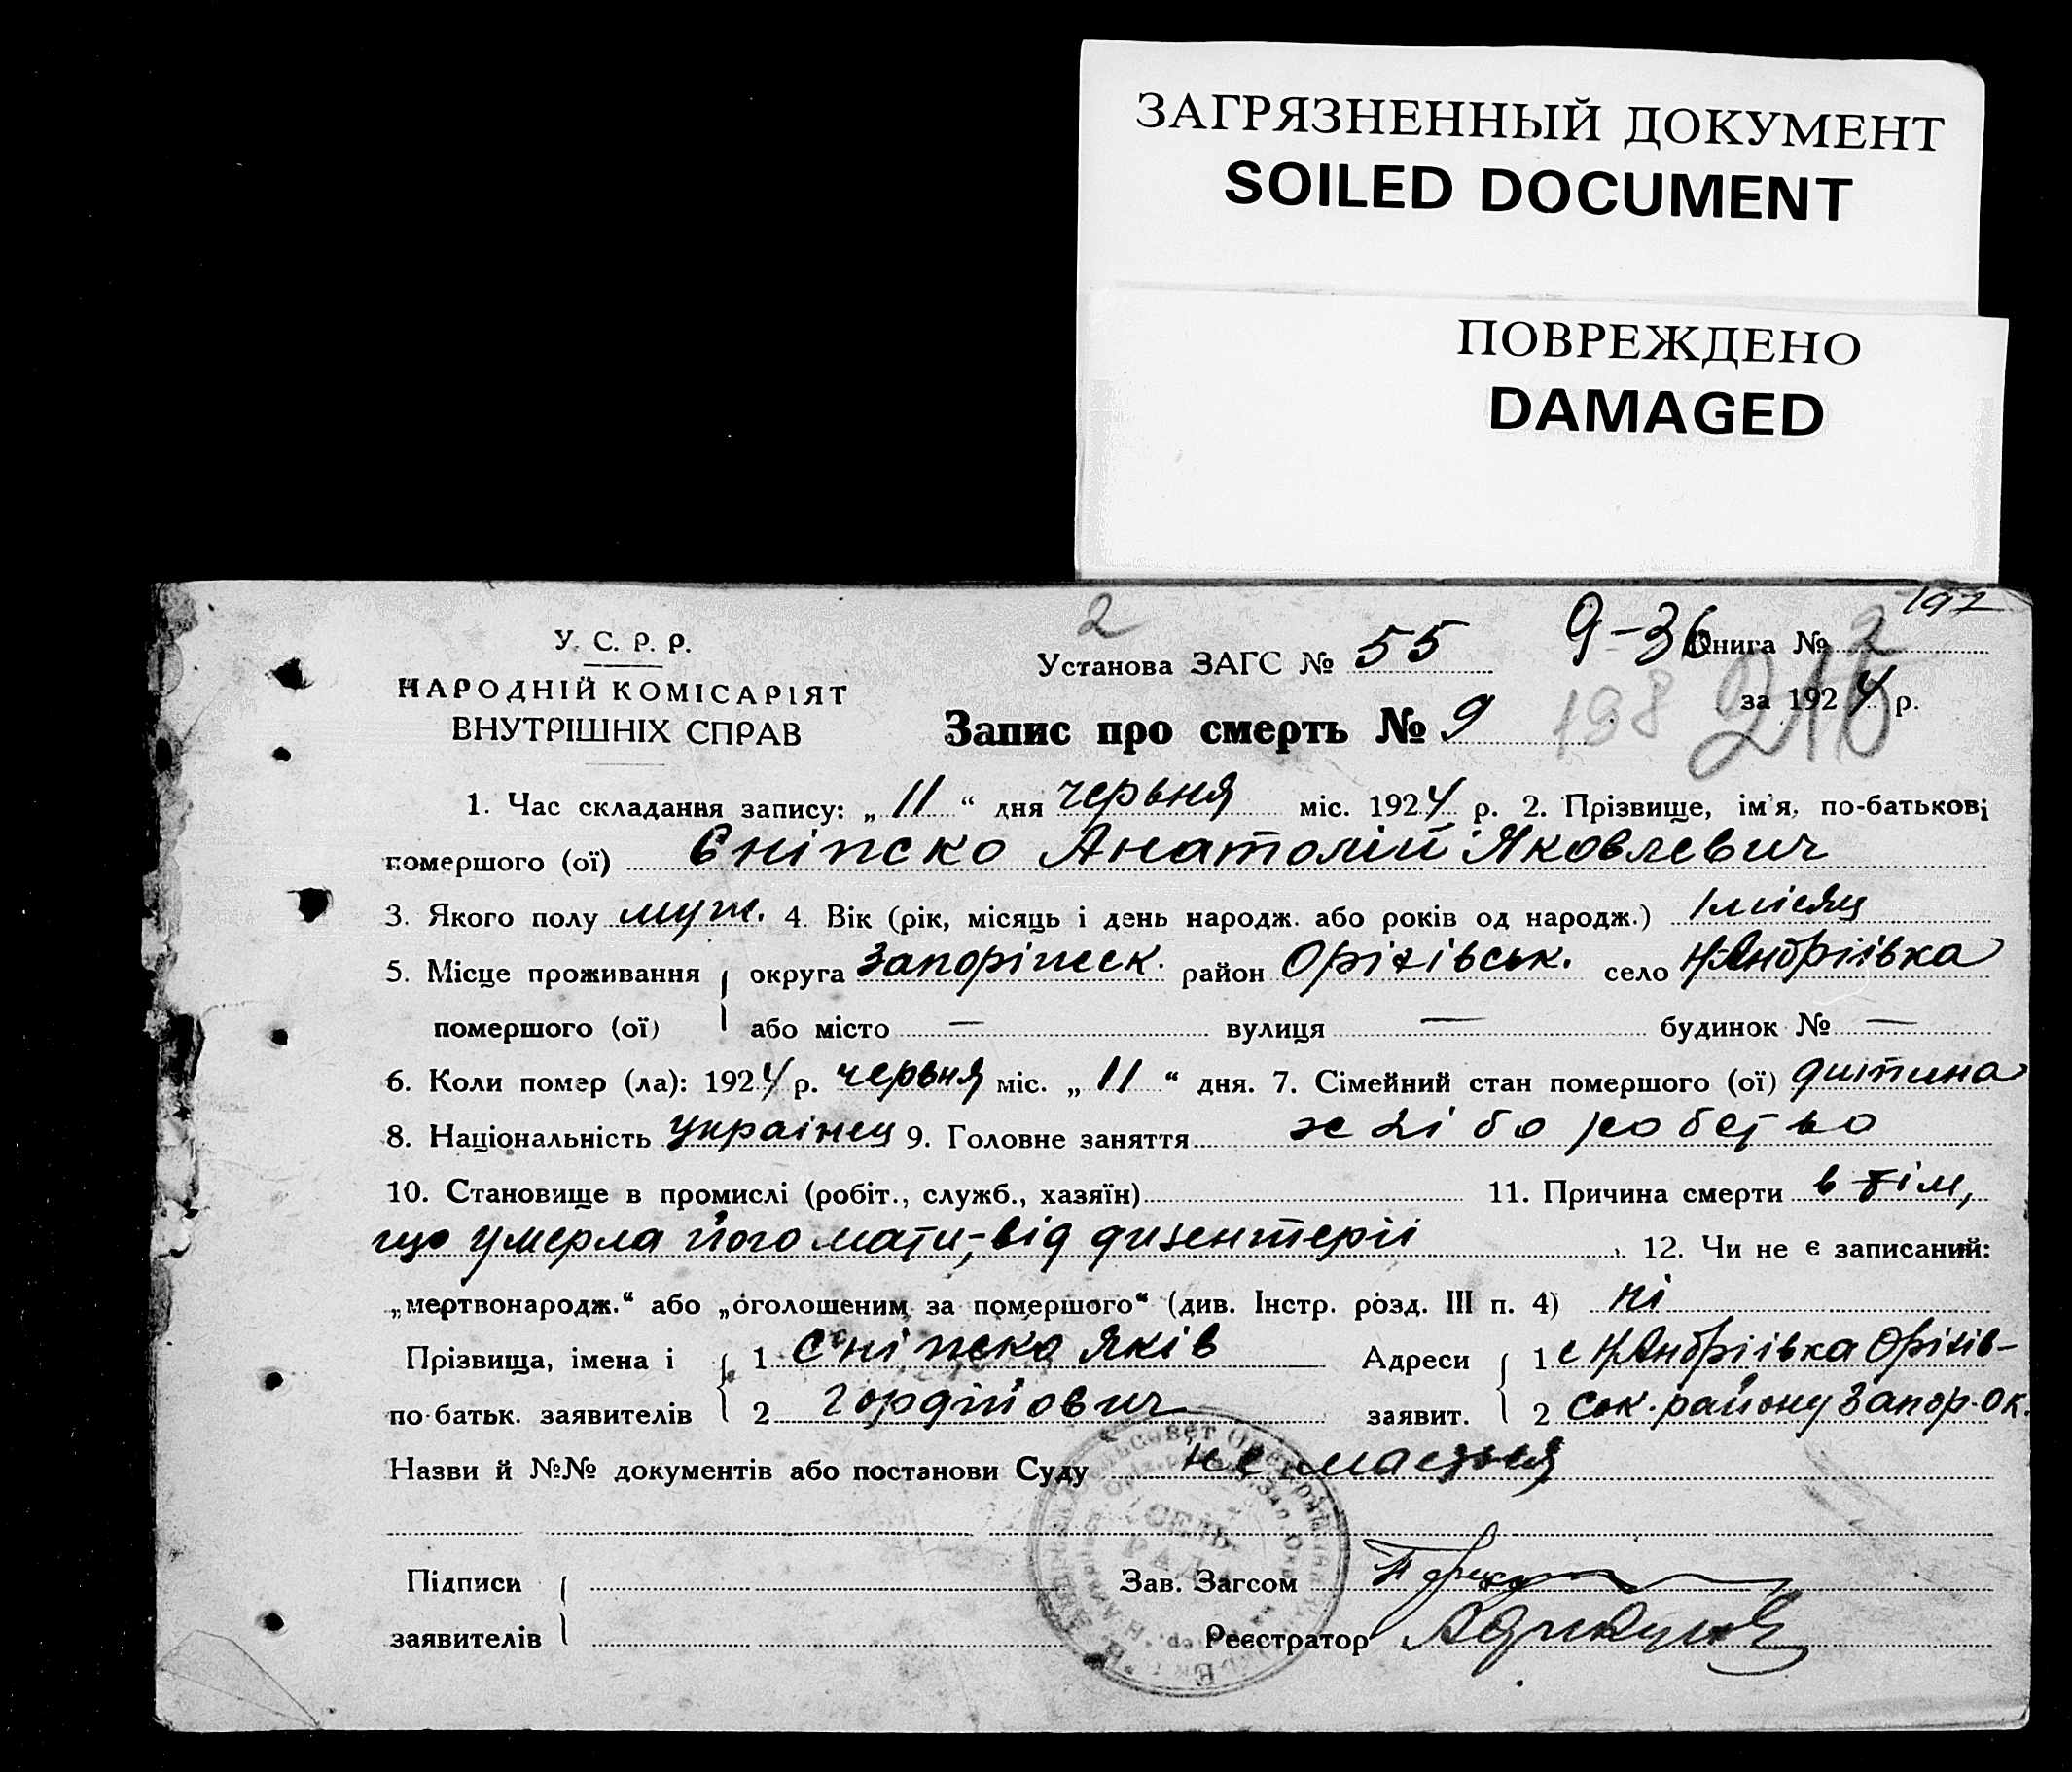 ЗАГРЯЗНЕННЫЙ ДОКУМЕНТ
SOILED DOCUMENT
ПОВРЕЖДЕНО
DAMAGED
У. С. Р. Р.
НАРОДНІЙ КОМІСАРІЯТ
ВНУТРІШНІХ СПРАВ
2
Установа ЗАГС № 55
9-36
Книга № 2
197
за 1924 р.
Запис про смерть № 9
198
216
1. Час складання запису: „11" дня червня міс. 1924 р. 2. Прізвище, ім'я, по-батькові
помершого (ої) Сніпско Анатолій Яковлевич
3. Якого полу муж. 4. Вік (рік, місяць і день народж. або років од народж.) 1 місяц
5. Місце проживання округа Запоріжск. район Оріхівськ. село Н Андріівка
помершого (ої) або місто — вулиця — будинок № —
6. Коли помер (ла): 1924 р. червня міс. „11" дня. 7. Сімейний стан помершого (ої) дитина
8. Національність Украінец 9. Головне заняття хліборобство
10. Становище в промислі (робіт., служб., хазяїн) 11. Причина смерти в тім,
що умерла його мати,-від дизентеріі
12. Чи не є записаний:
„мертвонародж." або „оголошеним за помершого" (див. Інстр. розд. III п. 4) ні
Прізвища, імена і 1 Сніпско Яків Адреси 1 с Н Андріівка Оріхів-
по-батьк. заявителів 2 Гордійович заявит. 2 ськ. району Запор. Ок.
Назви й №№ документів або постанови Суду не мається
Підписи Зав. Загсом
заявителів Реєстратор